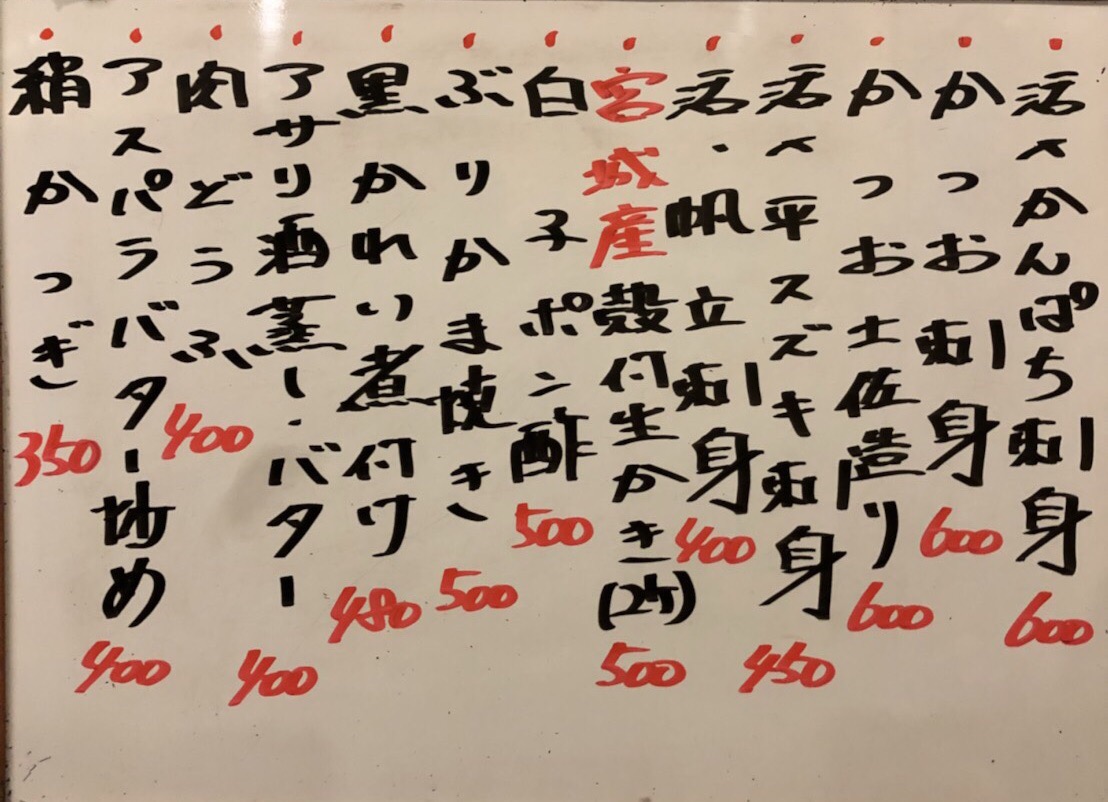 活〆かんぱち刺身 600
かつお刺身 600
かつお土佐造り 600
活〆平スズキ刺身 450
活・帆立刺身 400
宮城産殻付生かき(2ケ) 500
白子ポン酢 500
ぶりかま焼き 500
黒かれい煮付け 480
アサリ酒蒸し・バター 400
肉どうふ 400
アスパラバター炒め 400
絹かつぎ 350